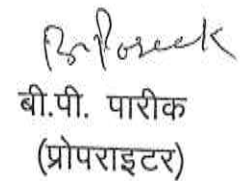 बी.पी. पारीक
(प्रोपराइटर)